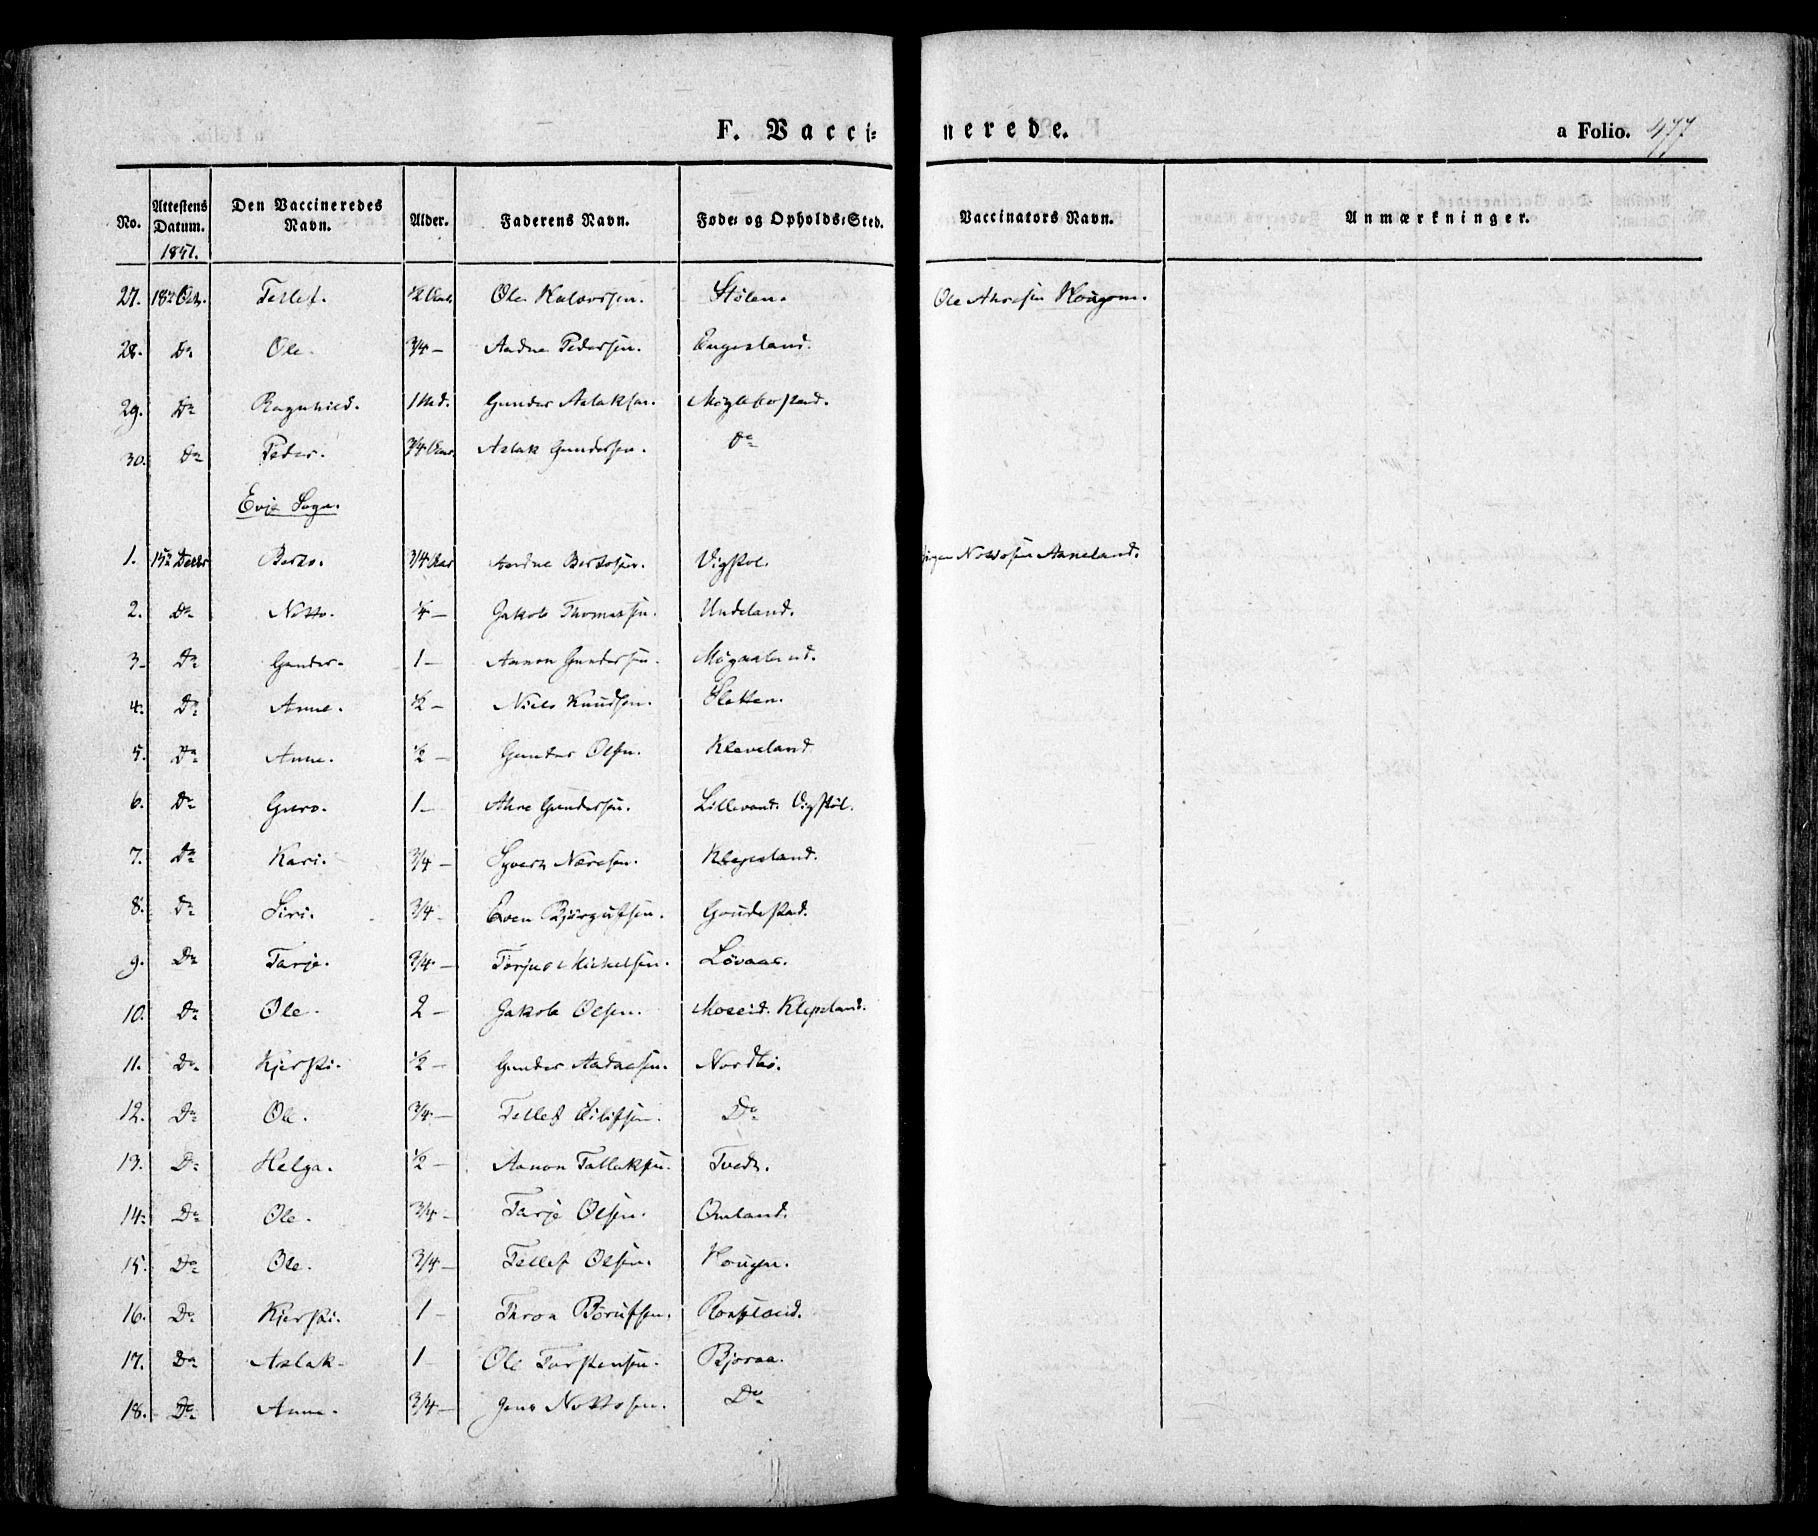 F. Vacci-nerede.
a Folio. 477
No. Attestens Datum. 1841. Den Vaccineredes Navn. Alder. Faderens Navn. Føde- og Opholds-Sted. Vaccinators Navn. Anmærkninger.
27. 18de Octr. Tellef. 1/2 Aar. Ole Halvorsen. Stølen. Ole Aanesen Hougen.
28. Do Ole. 3/4 — Aadne Pedersen. Engesland.
29. Do Ragnhild. 1 Md. Gunder Aslaksen. Møglebostad.
30. Do Peder. 3/4 Aar. Aslak Gundersen. Do
Evje Sogn.
1. 15de Decbr Berto. 3/4 Aar Aadne Bertosen. Vigstøl. Nottosen Aaneland.
2. Do Notto. 1/4 — Jakob Thomassen. Undeland.
3. Do Gunder. 1 — Aanon Gundersen. Møgaaland.
4. Do Anne. 1/2 — Niels Knudsen. Sletten.
5. Do Anne. 1/2 — Gunder Olsen. Kleveland
6. Do Guro. 1 — Gundersen. Lillevand. Vigstøl.
7. Do Kari. 3/4 — Syvert Næresen. Klepesland.
8. Do Siri. 3/4 — Even Bjørgufsen. Goudestad.
9. Do Tarje. 3/4 — Torjus Mickelsen. Løvaas.
10. Do Ole. 2 — Jakob Olsen. Moseid. Klepsland.
11. Do Kjersti. 1/2 — Gunder Aadnesen. Nordbø.
12. Do Ole. 3/4 — Tellef Eilifsen. Do
13. Do Helga. 1/2 — Aanon Tallaksen. Tvedt.
14. Do Ole. 3/4 — Tarje Olsen. Omland.
15. Do Ole. 3/4 — Tellef Olsen. Hougen.
16. Do Kjersti. 1 — Thron Børufsen. Rossland.
17. Do Aslak. 1 Ole Torstensen. Bjoraa.
18. Do Anne. 3/4 — Jens Nottosen. Do